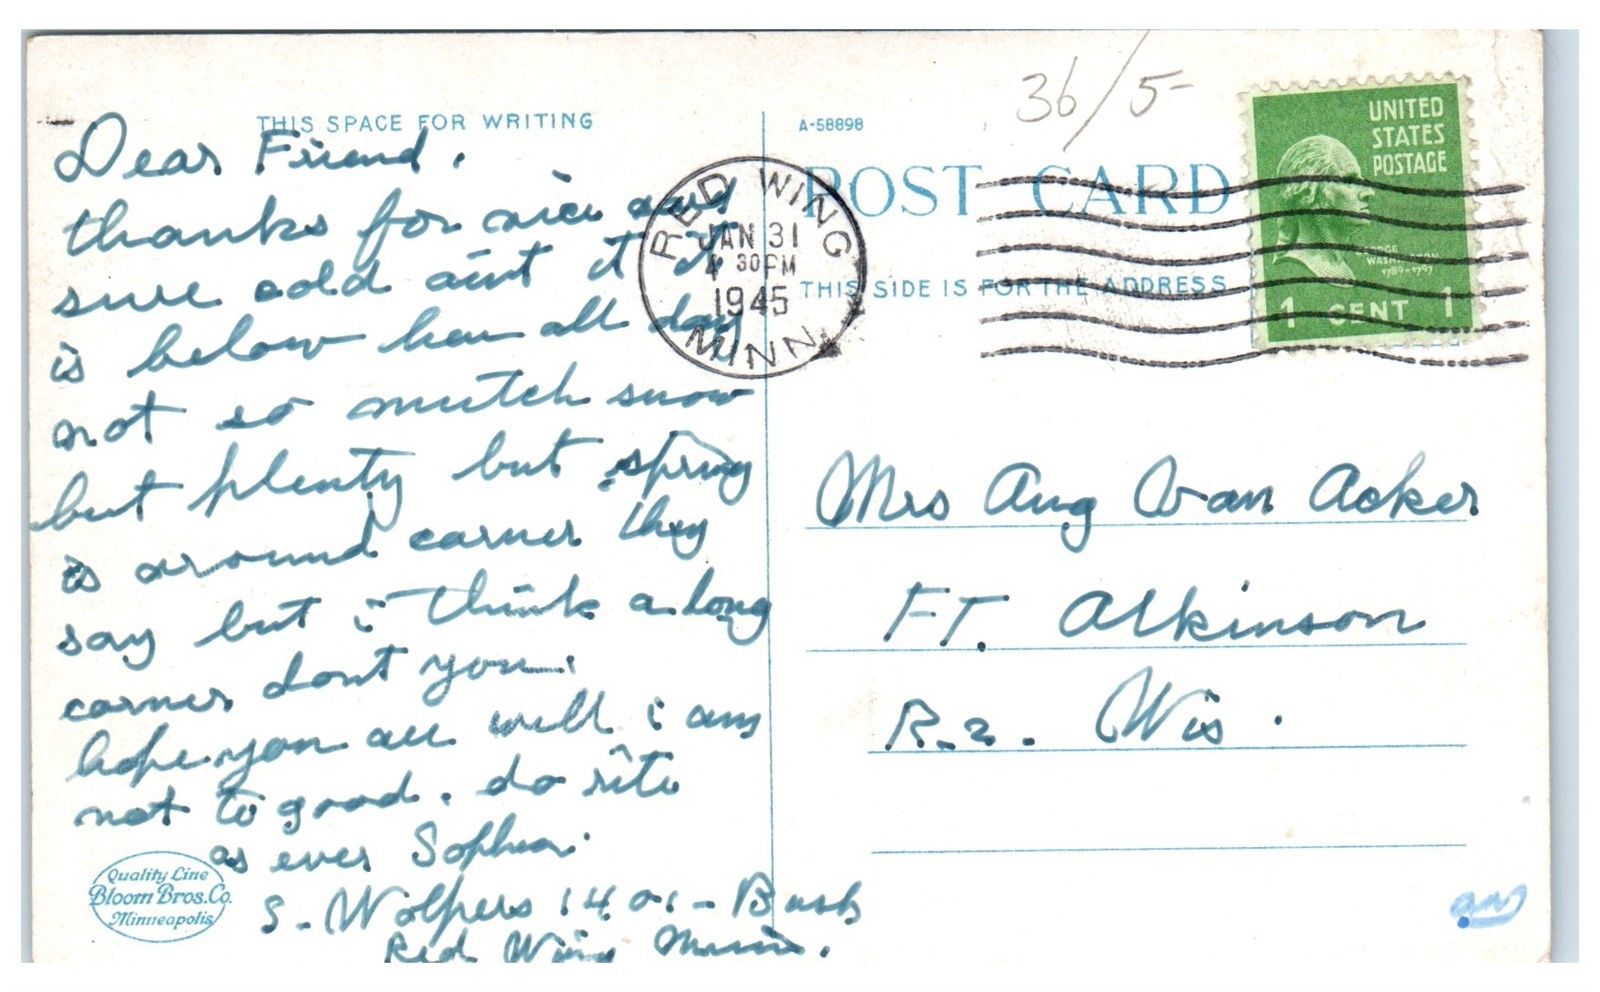 36/5-
THIS SPACE FOR WRITING
A-58898
POST CARD
THIS SIDE IS FOR THE ADDRESS
UNITED
STATES
POSTAGE
GEORGE
WASHINGTON
1789-1797
1 CENT 1
RED WING
JAN 31
4 30 PM
1945
MINN.
Dear Friend.
thanks for nice
sure cold aint it it
is below hear all day
not so mutch snow
but plenty but spring
is around corner they
say but i think a long
corner dont you.
hope you all well i am
not to good. do rite
as ever Sophia.
S. Wolpers 1401 - Bush
Red Wing Minn.
Mrs Aug Van Acker
FT. Atkinson
R.2. Wis.
Quality Line
Bloom Bros. Co.
Minneapolis